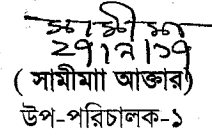 সামীমা
২৭।২।১৭
( সামীমাা আক্তার)
উপ-পরিচালক-১